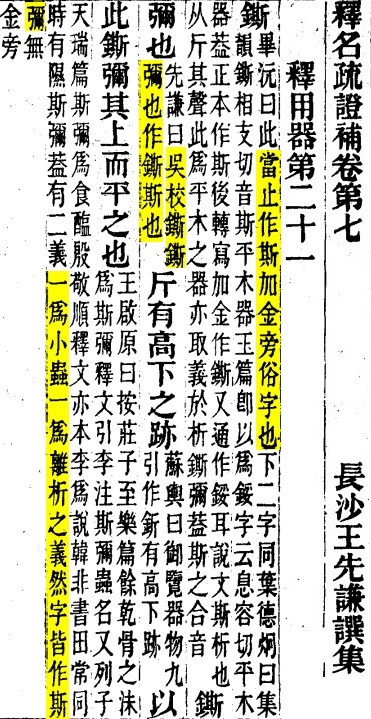 釋名疏證補卷第七
長沙王先謙譔集
釋用器第二十一
鐁畢沅曰此當止作斯加金旁俗字也下二字同葉德炯曰集
韻鐁相支切音斯平木器玉篇卽以爲鋖字云息容切平木
器葢正本作斯後轉寫加金作鐁又通作鋖耳說文斯析也
从斤其聲此爲平木之器亦取義於析鐁彌葢斯之合音
鐁
彌也
先謙曰吳校鐁鐁
彌也作鐁斯也
斤有高下之跡
蘇輿曰御覽器物九
引作釿有高下跡
以
此鐁彌其上而平之也
王啟原曰按莊子至樂篇餘乾骨之沫
爲斯彌釋文引李注斯彌蟲名又列子
天瑞篇斯彌爲食醯殷敬順釋文亦本李爲說韓非書田常同
時有隰斯彌葢有二義一爲小蟲一爲離析之義然字皆作斯
彌無
金旁